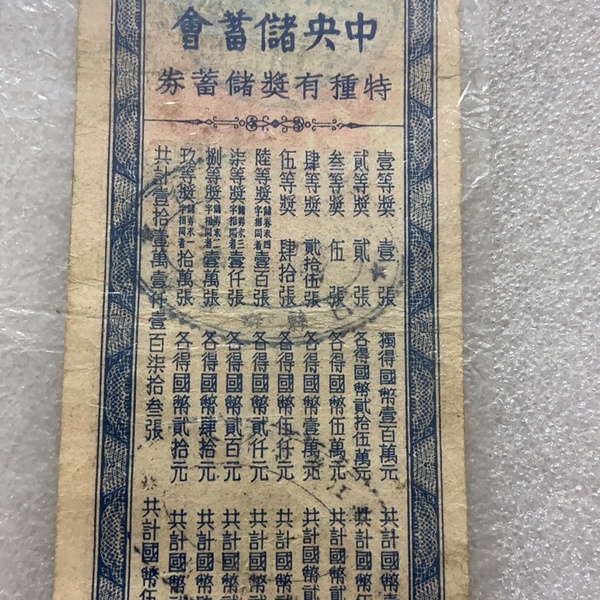 中央儲蓄會
特種有獎儲蓄券
壹等獎 壹張 獨得國幣壹百萬元 共計國幣
貳等獎 貳張 各得國幣貳拾伍萬元 共計國幣伍
叁等獎 伍張 各得國幣伍萬元 共計國幣貳
肆等獎 貳拾伍張 各得國幣壹萬元 共計國幣貳
伍等獎 肆拾張 各得國幣伍仟元 共計國幣貳
陸等獎 儲券末四字相同者 壹百張 各得國幣貳仟元 共計國幣貳
柒等獎 儲券末三字相同者 壹仟張 各得國幣貳百元 共計國幣貳
捌等獎 儲券末二字相同者 壹萬張 各得國幣肆拾元 共計國幣
玖等獎 儲券末一字相同者 拾萬張 各得國幣貳拾元 共計國幣貳
共計壹拾壹萬壹仟壹百柒拾叁張 共計國幣伍